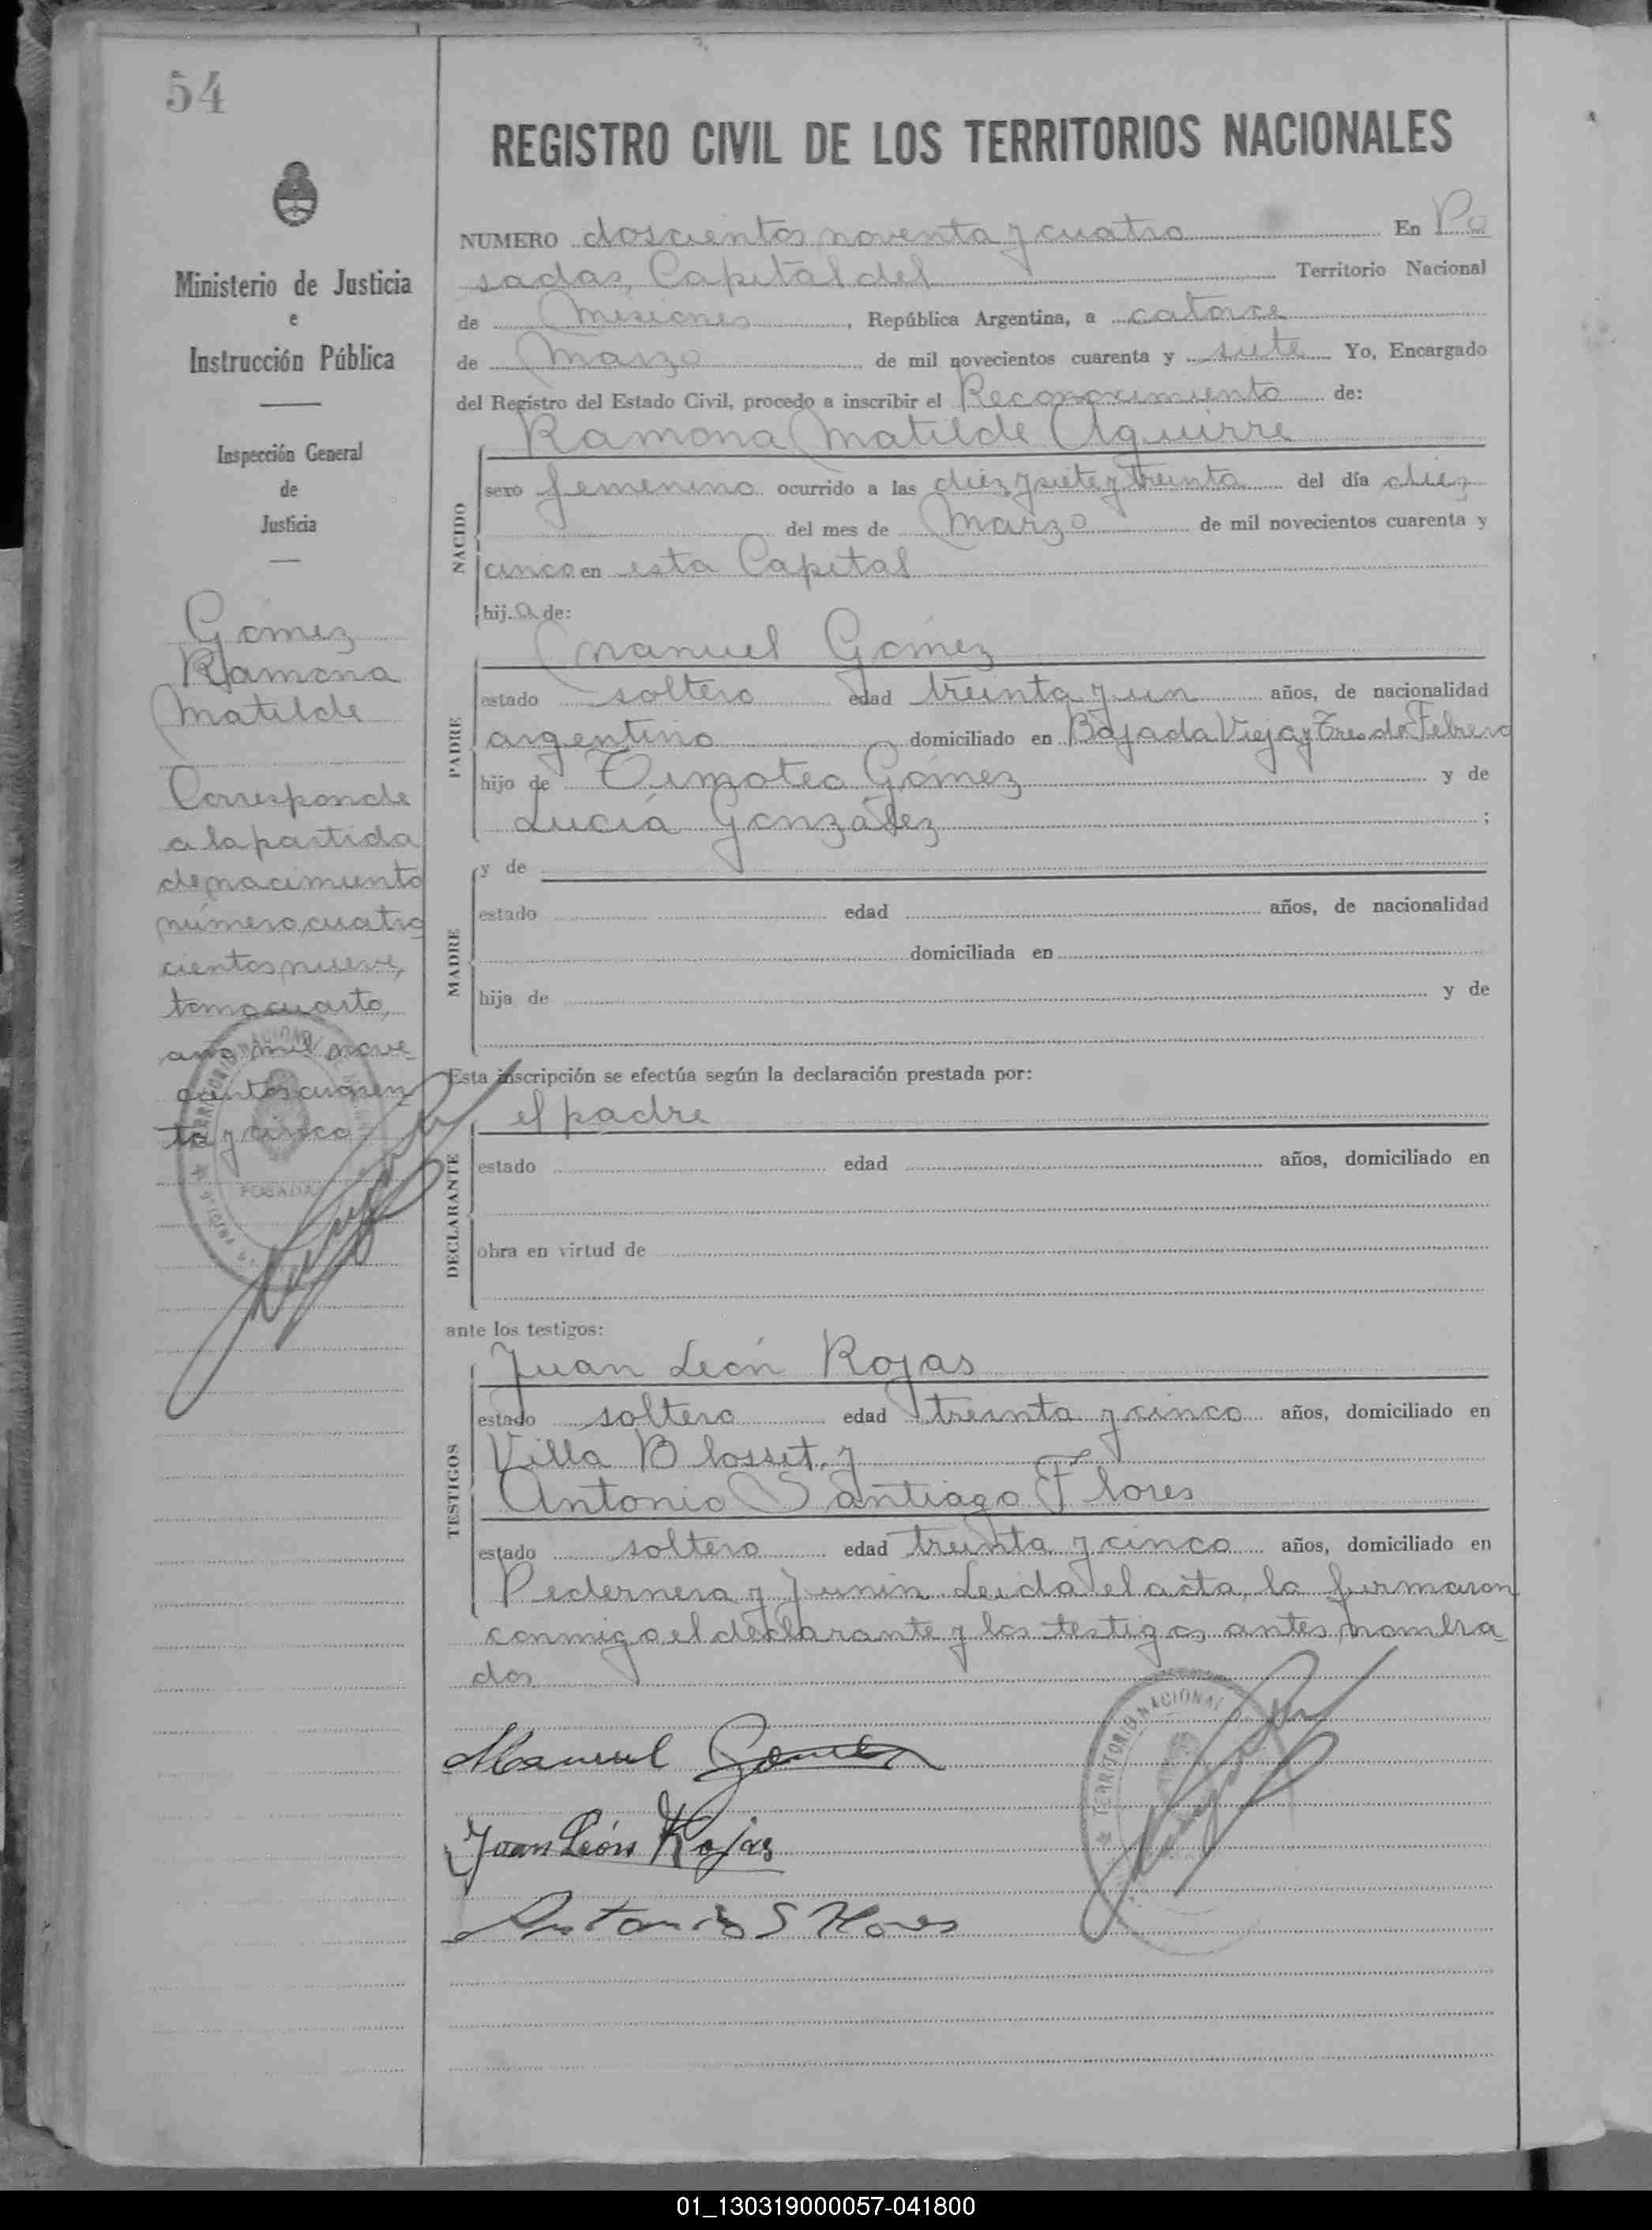 54
Ministerio de Justicia
e
Instrucción Pública
Inspección General
de
Justicia
Gómez
Ramona
Matilde
Corresponde
a la partida
de nacimiento
número cuatro
cientos nueve,
tomo cuarto,
año mil nove
cientos cuaren
ta y cinco
TERRITORIO NACIONAL
POSADAS
REGISTRO CIVIL DE LOS TERRITORIOS NACIONALES
NUMERO doscientos noventa y cuatro En Po
sadas, Capital del Territorio Nacional
de Misiones, República Argentina, a catorce
de Marzo de mil novecientos cuarenta y siete Yo, Encargado
del Registro del Estado Civil, procedo a inscribir el Reconocimiento de:
Ramona Matilde Aguirre
NACIDO
sexo femenino ocurrido a las diez y siete y treinta del día diez
del mes de Marzo de mil novecientos cuarenta y
cinco en esta Capital
hija de:
Manuel Gómez
PADRE
estado soltero edad treinta y un años, de nacionalidad
argentino domiciliado en Bajada Vieja y Tres de Febrero
hijo de Timoteo Gómez y de
Lucía González ;
MADRE
y de
estado edad años, de nacionalidad
domiciliada en
hija de y de
Esta inscripción se efectúa según la declaración prestada por:
el padre
DECLARANTE
estado edad años, domiciliado en
obra en virtud de
ante los testigos:
TESTIGOS
Juan León Rojas
estado soltero edad treinta y cinco años, domiciliado en
Villa Blosset, y
Antonio Santiago Flores
estado soltero edad treinta y cinco años, domiciliado en
Pedernera y Junin. Leida el acta, la firmaron
conmigo el declarante y los testigos antes nombra
dos
Manuel Gomez
Juan León Rojas
Antonio S Flores
TERRITORIO NACIONAL
01_130319000057-041800